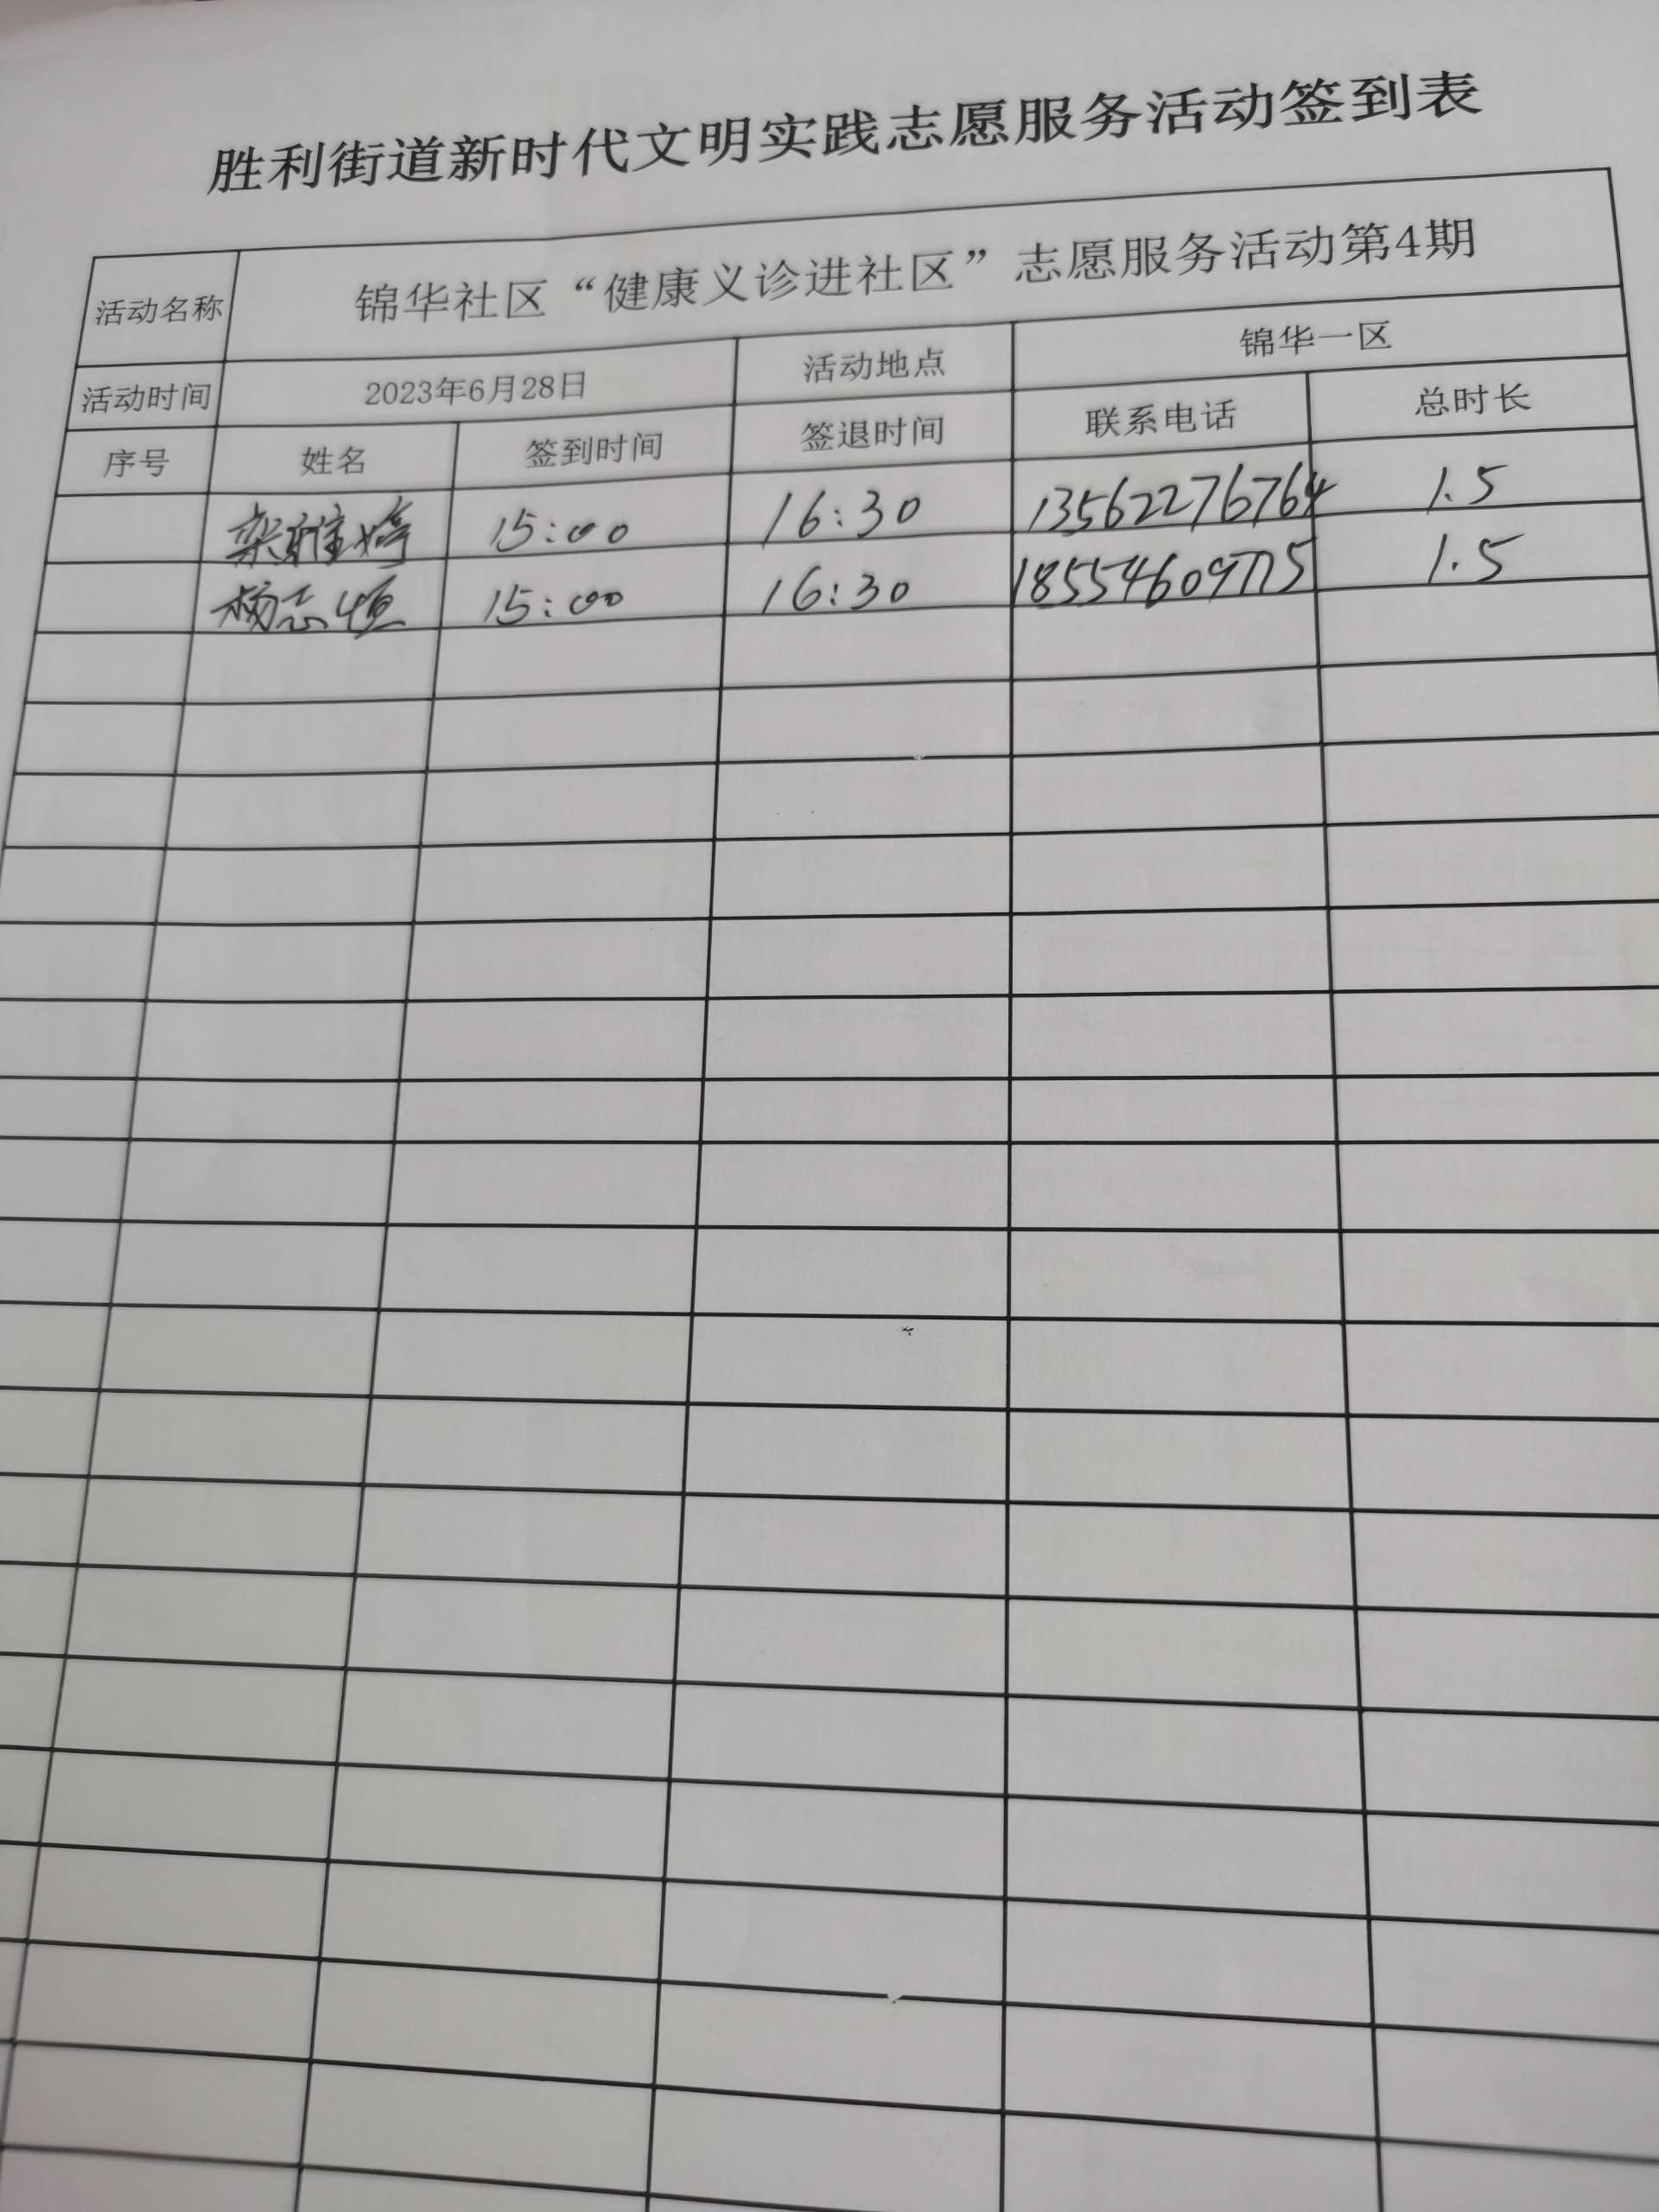 胜利街道新时代文明实践志愿服务活动签到表
活动名称 锦华社区“健康义诊进社区”志愿服务活动第4期
活动时间 2023年6月28日 活动地点 锦华一区
序号 姓名 签到时间 签退时间 联系电话 总时长
栾雅婷 15:00 16:30 13562276764 1.5
杨志恒 15:00 16:30 18554609775 1.5